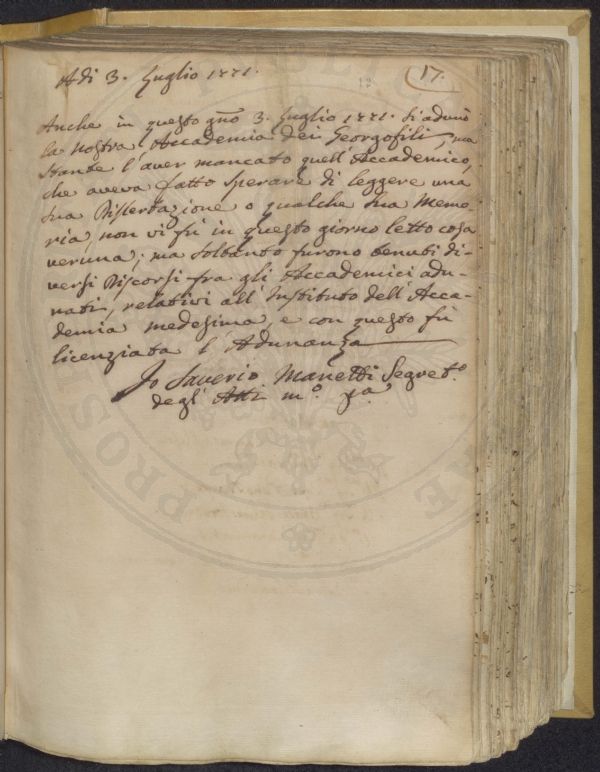 17.
Adi 3. Luglio 1771.
Anche in questo gno 3. Luglio 1771. si adunò
la nostra Accademia dei Georgofili, ma
stante l'aver mancato quell'Accademico,
che aveva fatto sperare di leggere una
sua Dissertazione o qualche sua Memo-
ria, non vi fù in questo giorno letto cosa
veruna, ma soltanto furono tenuti di-
versi Discorsi fra gli Accademici adu-
nati, relativi all'Instituto dell'Acca-
demia medesima, e con questo fù
licenziata l'Adunanza
Io Saverio Manetti Segret.º
degl'Atti m.º pa
PROSPERITATI